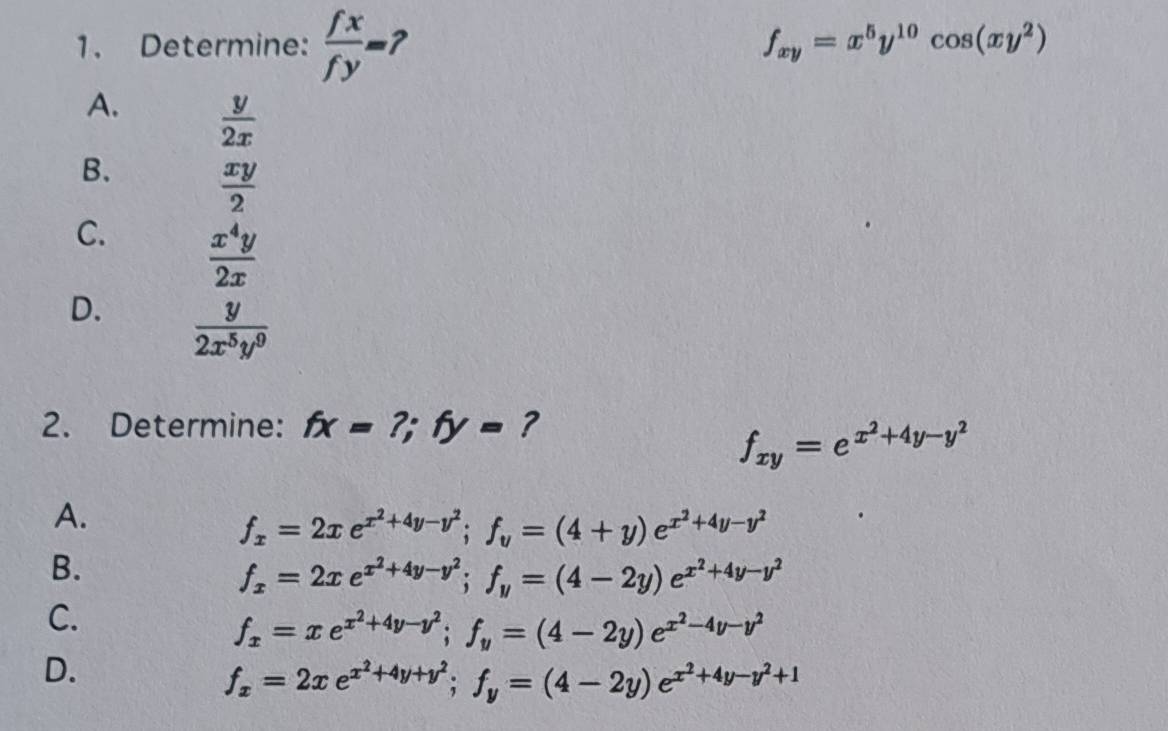 1. Determine: \frac{fx}{fy}=? f_{xy} = x^5y^{10} cos(xy^2)
A. \frac{y}{2x}
B. \frac{xy}{2}
C. \frac{x^4y}{2x}
D. \frac{y}{2x^5y^9}
2. Determine: fx = ?; fy = ? f_{xy} = e^{x^2+4y-y^2}
A. f_x = 2x e^{x^2+4y-y^2}; f_y = (4 + y) e^{x^2+4y-y^2}
B. f_x = 2x e^{x^2+4y-y^2}; f_y = (4 - 2y) e^{x^2+4y-y^2}
C. f_x = x e^{x^2+4y-y^2}; f_y = (4 - 2y) e^{x^2-4y-y^2}
D. f_x = 2x e^{x^2+4y+y^2}; f_y = (4 - 2y) e^{x^2+4y-y^2+1}